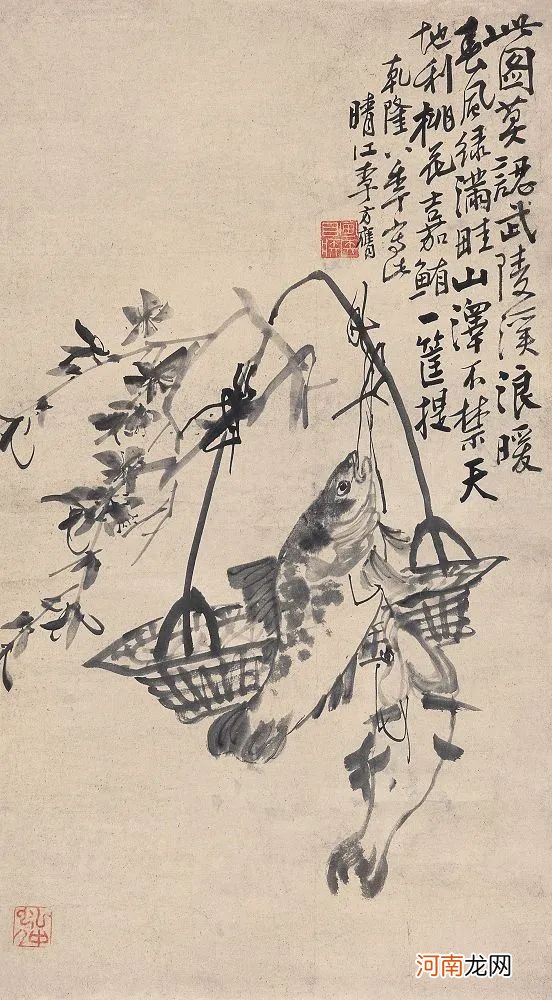 此圖莫認武陵溪浪暖
春風綠滿畦山澤不禁天
地利桃花嘉鮪一筐提
乾隆八年寫此
晴江李方膺
河南龙网